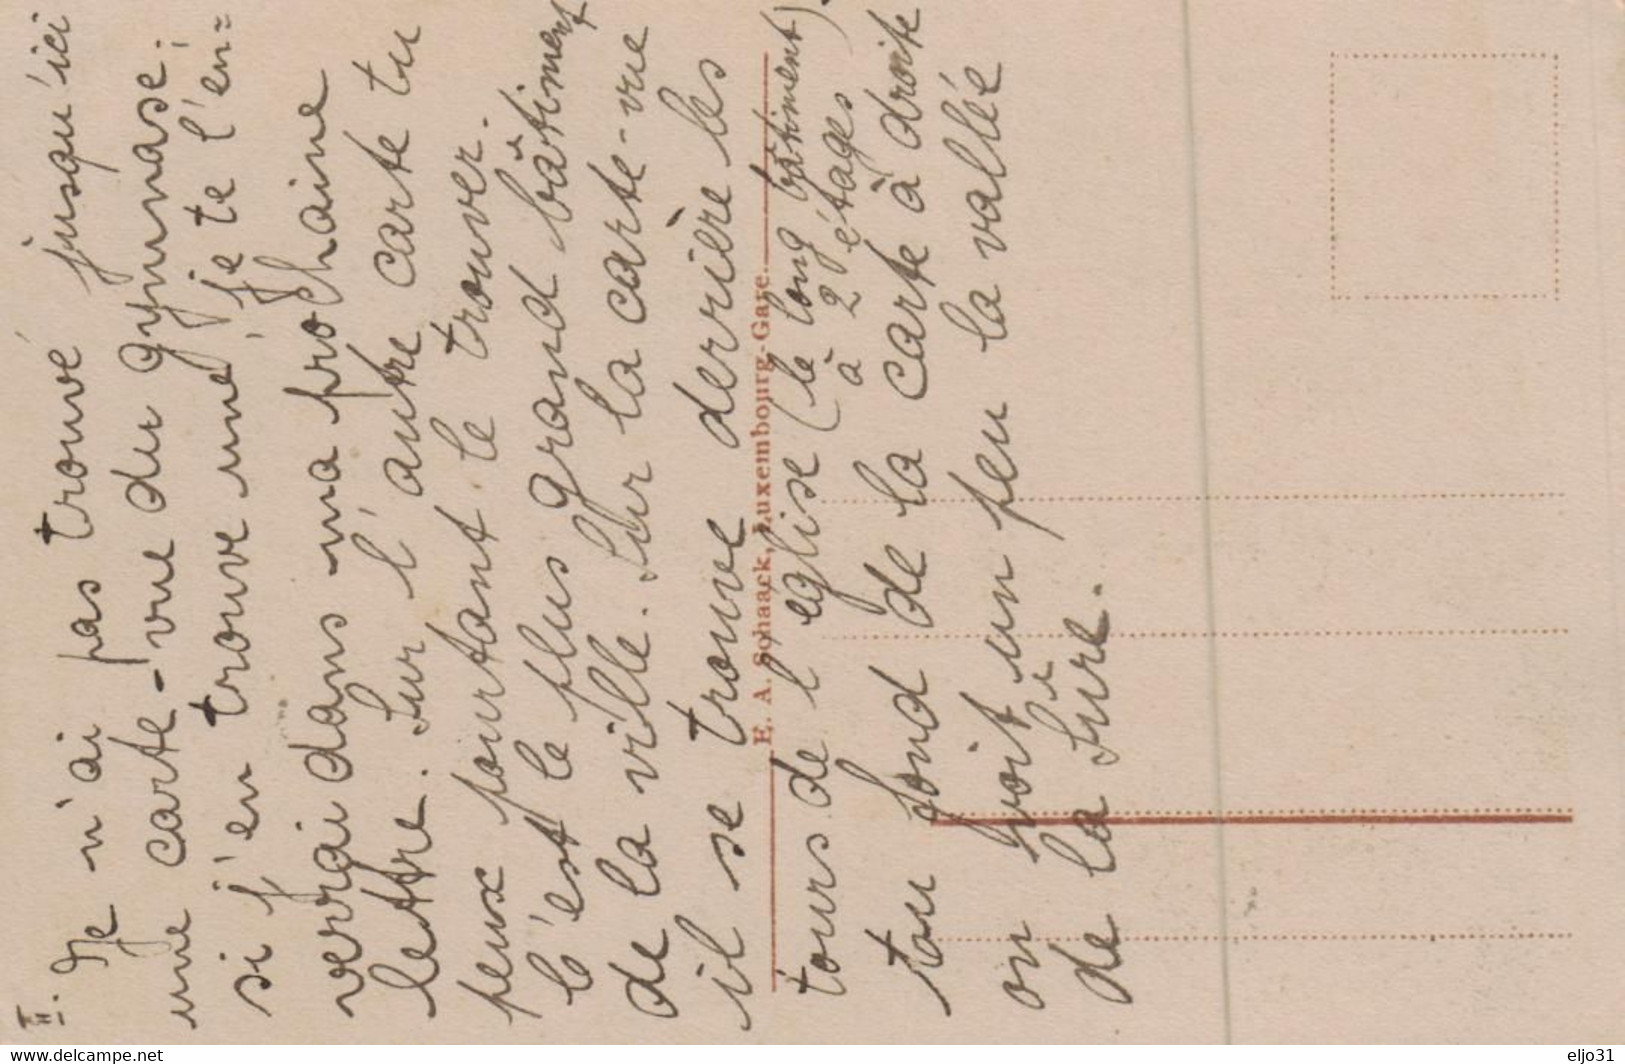 II.
Je n'ai pas trouvé jusqu'ici
une carte-vue du gymnase;
si j'en trouve une je te l'en=
verrai dans ma prochaine
lettre. Sur l'autre carte tu
peux pourtant le trouver.
C'est le plus grand bâtiment
de la ville. Sur la carte-vue
il se trouve derrière les
tours de l'église (le long bâtiment)
à 2 étages
Au fond de la carte à droite
on voit un peu la vallée
de la Sûre.
E. A. Schaack, Luxembourg-Gare.
www.delcampe.net
eljo31